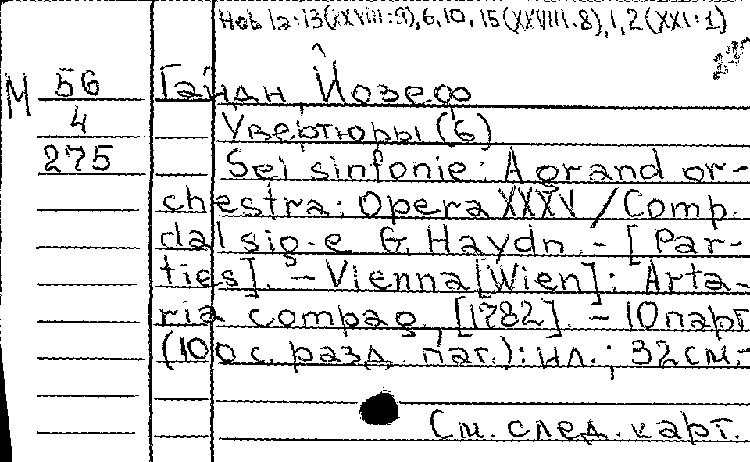 Hob Ia:13(XXVIII:9),6,10,15(XXVIII:8),1,2(XXI:1)
М 56 Гайдн, Йозеф
4 Увертюры (6)
275 Sei sinfonie: A grand or-
chestra: Opera XXXV / Comp.
dal sig-e G. Haydn. - [Par-
ties]. - Vienna [Wien]: Arta-
ria compag., [1782]. - 10 парт.
(100 с. разд. паг.): ил.; 32 см.-
См. след. карт.